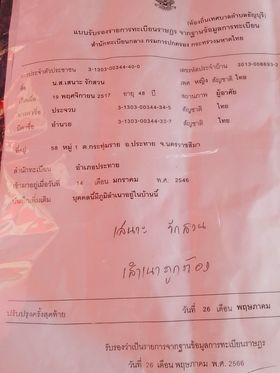 (ท้องถิ่นเทศบาลตำบลธัญบุรี)
แบบรับรองรายการทะเบียนราษฎร จากฐานข้อมูลการทะเบียน
สำนักทะเบียนกลาง กรมการปกครอง กระทรวงมหาดไทย
ประจำตัวประชาชน 3-1303-00344-40-0 เลขรหัสประจำบ้าน
น.ส.เสนาะ รักสวน เพศ หญิง สัญชาติ ไทย
19 พฤศจิกายน 2517 อายุ 48 ปี สถานภาพ ผู้อาศัย
ประจวบ สัญชาติ ไทย
อำนวย สัญชาติ ไทย
ที่อยู่ 58 หมู่ 1 ต.กระทุ่มราย อ.ประทาย จ.นครราชสีมา
สำนักทะเบียน อำเภอประทาย
เข้ามาอยู่เมื่อวันที่ 14 เดือน มกราคม พ.ศ. 2546
บุคคลนี้มีภูมิลำเนาอยู่ในบ้านนี้
เสนาะ รักสวน
สำเนาถูกต้อง
ปรับปรุงครั้งสุดท้าย วันที่ 26 เดือน พฤษภาคม
รับรองว่าเป็นรายการจากฐานข้อมูลการทะเบียนราษฎร
26 เดือน พฤษภาคม พ.ศ. 2566